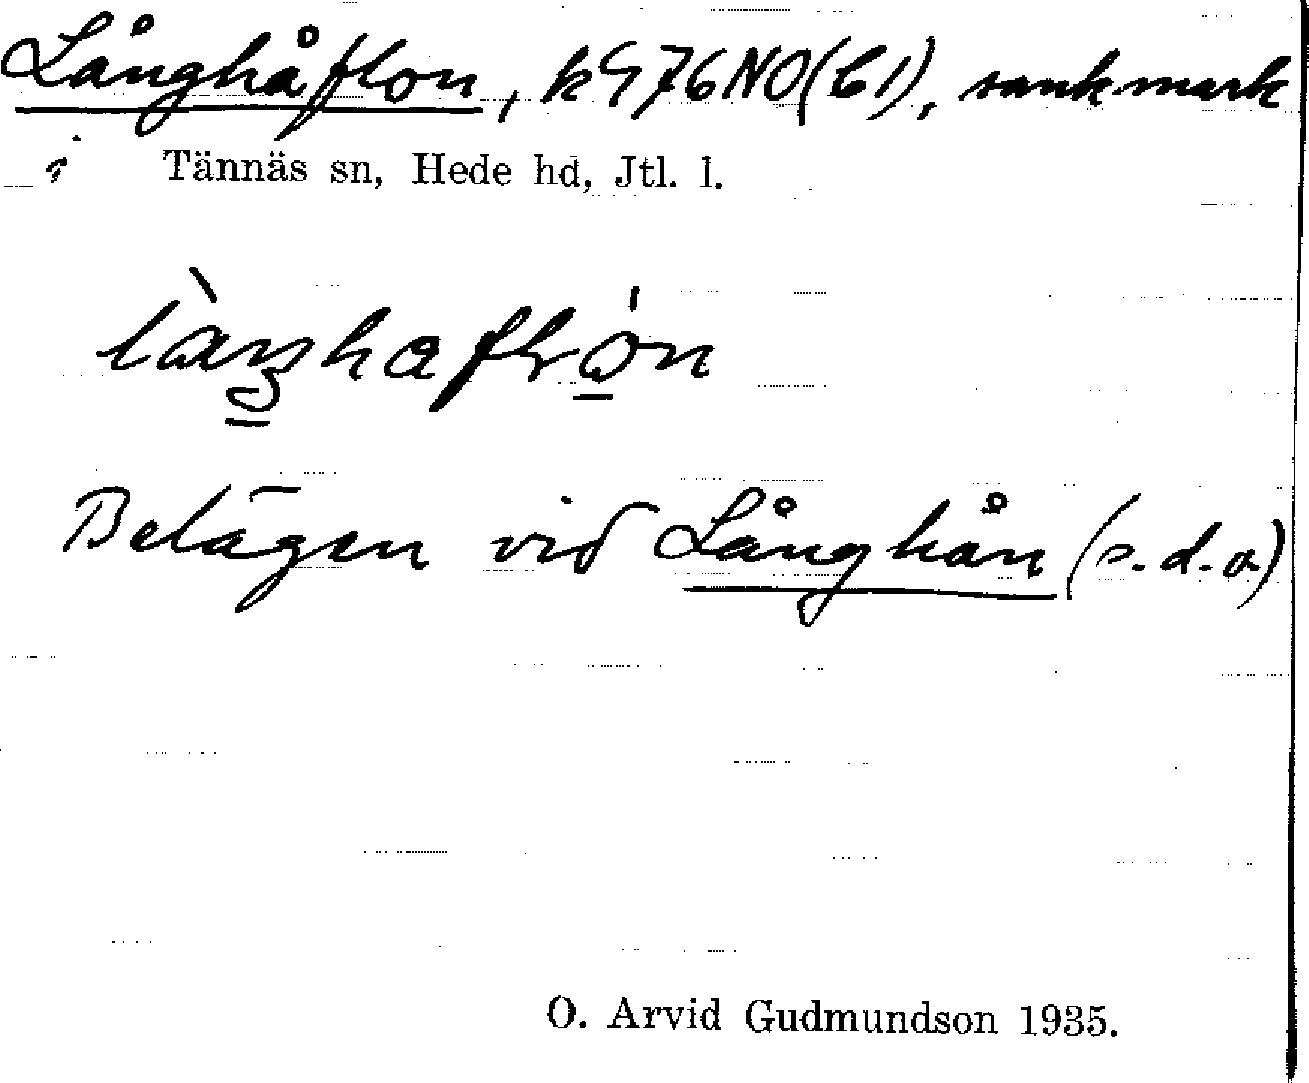 Långhåflon, k976NO(b1), sankmark
i Tännäs sn, Hede hd, Jtl. l.
Belägen vid Långhån (s.d.o)
O. Arvid Gudmundson 1935.